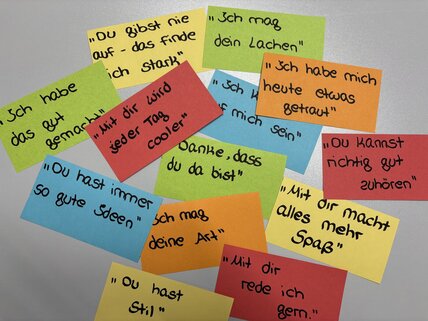 „Du gibst nie
auf - das finde
ich stark"
„Ich mag
dein Lachen"
„Ich habe mich
heute etwas
getraut"
„Ich habe
das gut
gemacht"
„Mit dir wird
jeder Tag
cooler"
„Ich
mich sein"
„Du kannst
richtig gut
zuhören"
Danke, dass
du da bist"
„Du hast immer
so gute Ideen"
„Mit dir macht
alles mehr
Spaß"
Ich mag
deine Art"
„Mit dir
rede ich
gern."
„Du hast
Stil"